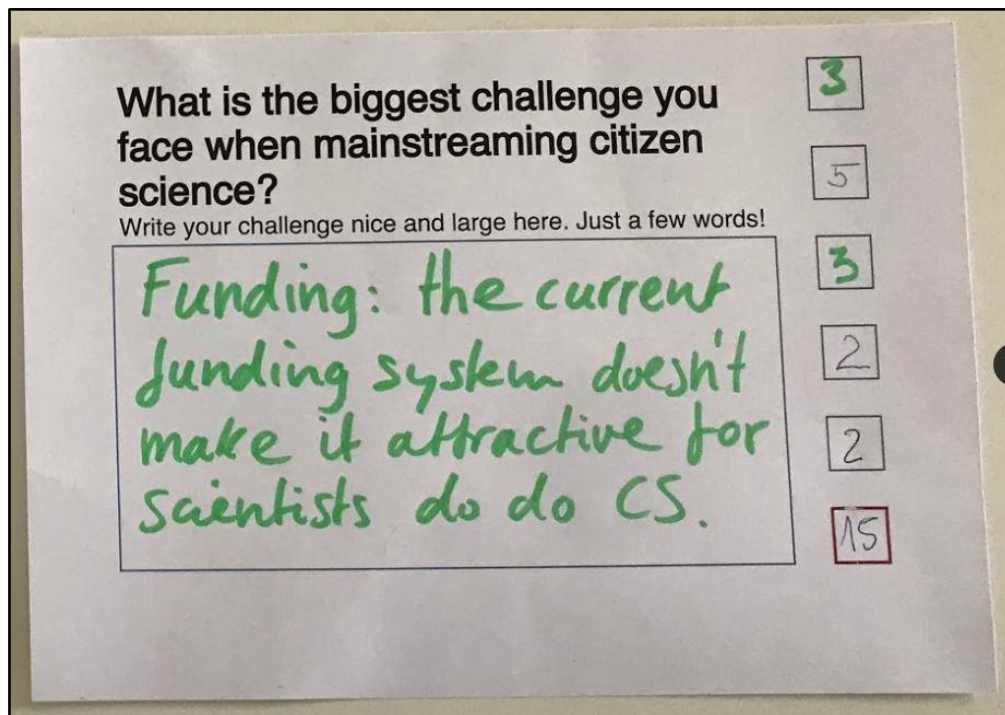 What is the biggest challenge you
face when mainstreaming citizen
science?
Write your challenge nice and large here. Just a few words!
Funding: the current
funding system doesn't
make it attractive for
scientists do do CS.
3
5
3
2
2
15